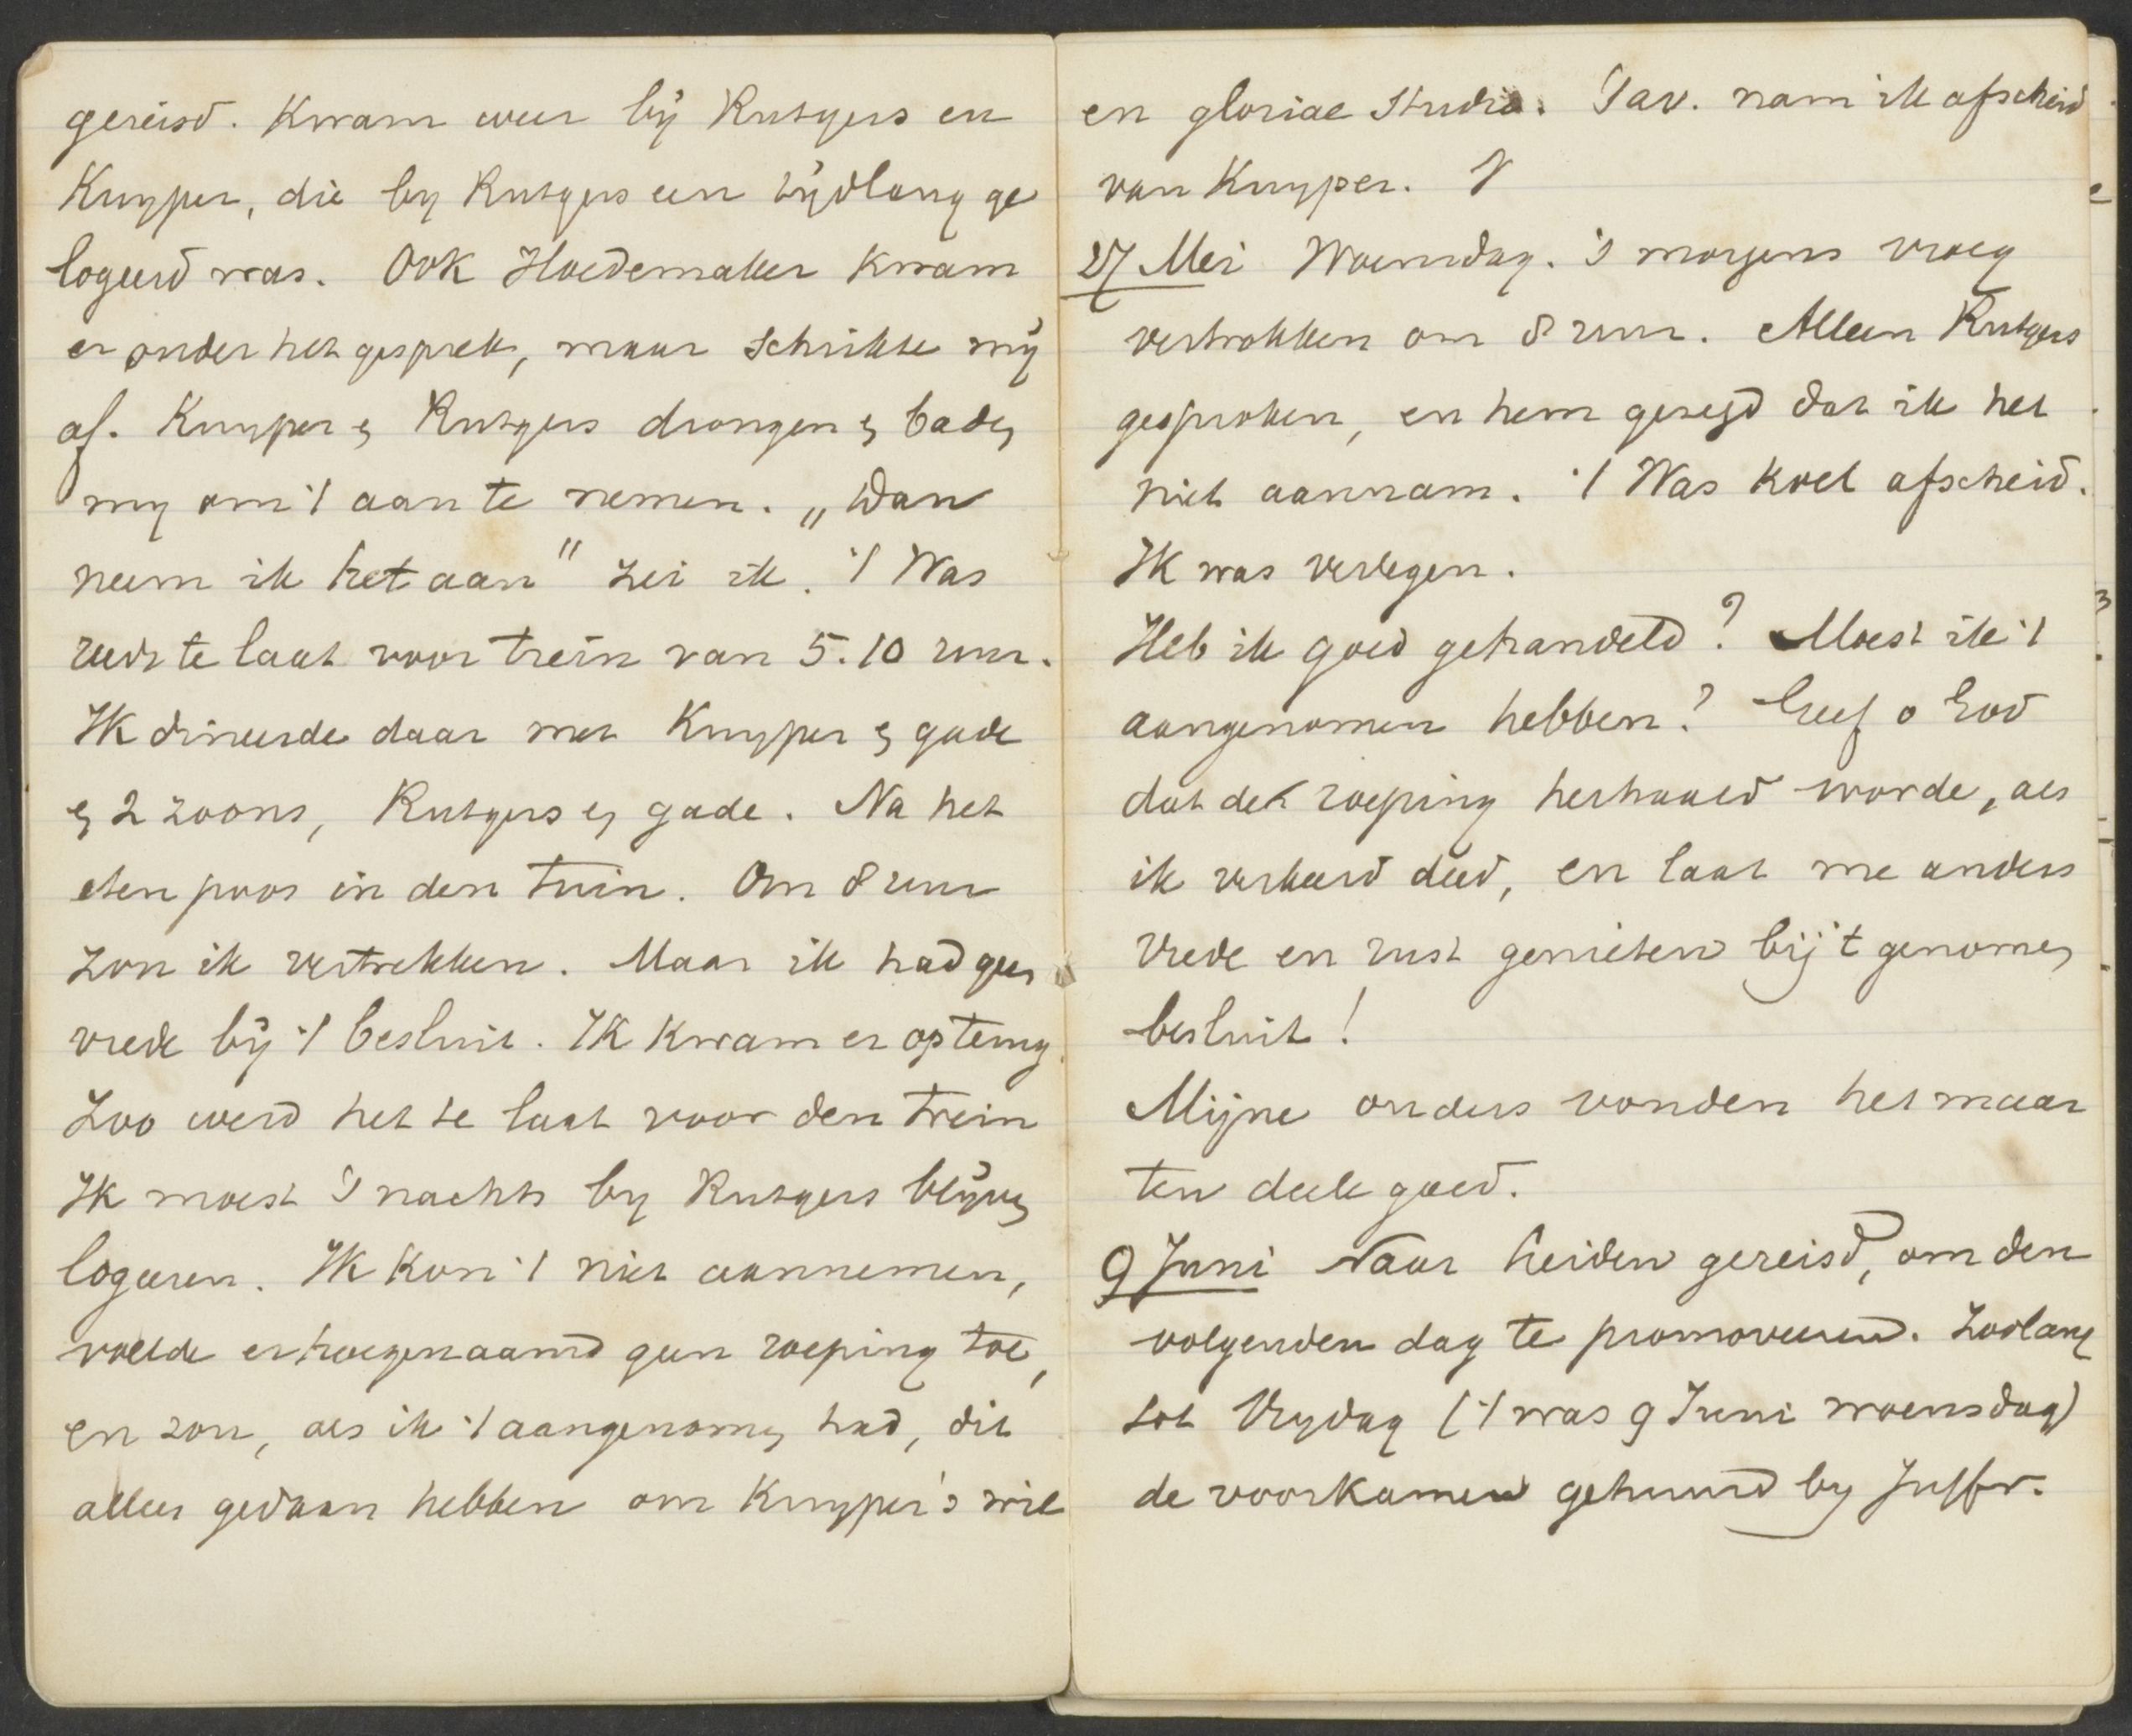 gereisd. Kwam weer bij Rutgers en
Kuyper, die by Rutgers een tijdlang ge
logeerd was. Ook Hoedemaker kwam
er onder het gesprek, maar schrikte mij
af. Kuyper en Rutgers drongen en baden
my om 't aan te nemen. „Dan
neem ik het aan" zei ik. 't Was
reeds te laat voor trein van 5.10 uur.
Ik dineerde daar met Kuyper en gade
en 2 zoons, Rutgers en gade. Na het
eten poos in den tuin. Om 8 uur
zou ik vertrekken. Maar ik had geen
vrede bij 't besluit. Ik kwam er op terug.
Zoo werd het te laat voor den trein
Ik moest 's nachts by Rutgers blijven
logeeren. Ik kon 't niet aannemen,
voelde er hoegenaamd geen roeping toe,
en zou, als ik 't aangenomen had, dit
alleen gedaan hebben om Kuyper's wil
en gloriae studio. 's av. nam ik afscheid
van Kuyper.
27 Mei Woensdag. 's morgens vroeg
vertrokken om 8 uur. Alleen Rutgers
gesproken, en hem gezegd dat ik het
niet aannam. 't Was koel afscheid.
Ik was verlegen.
Heb ik goed gehandeld? Moest ik 't
aangenomen hebben? Geef o God
dat de roeping herhaald worde, als
ik verkeerd deed, en laat me anders
vrede en rust genieten bij 't genomen
besluit!
Mijne ouders vonden het maar
ten deele goed.
9 Juni Naar Leiden gereisd, om den
volgenden dag te promoveeren. Zoolang
tot Vrydag ('t was 9 Juni woensdag)
de voorkamer gehuurd by Juffr.